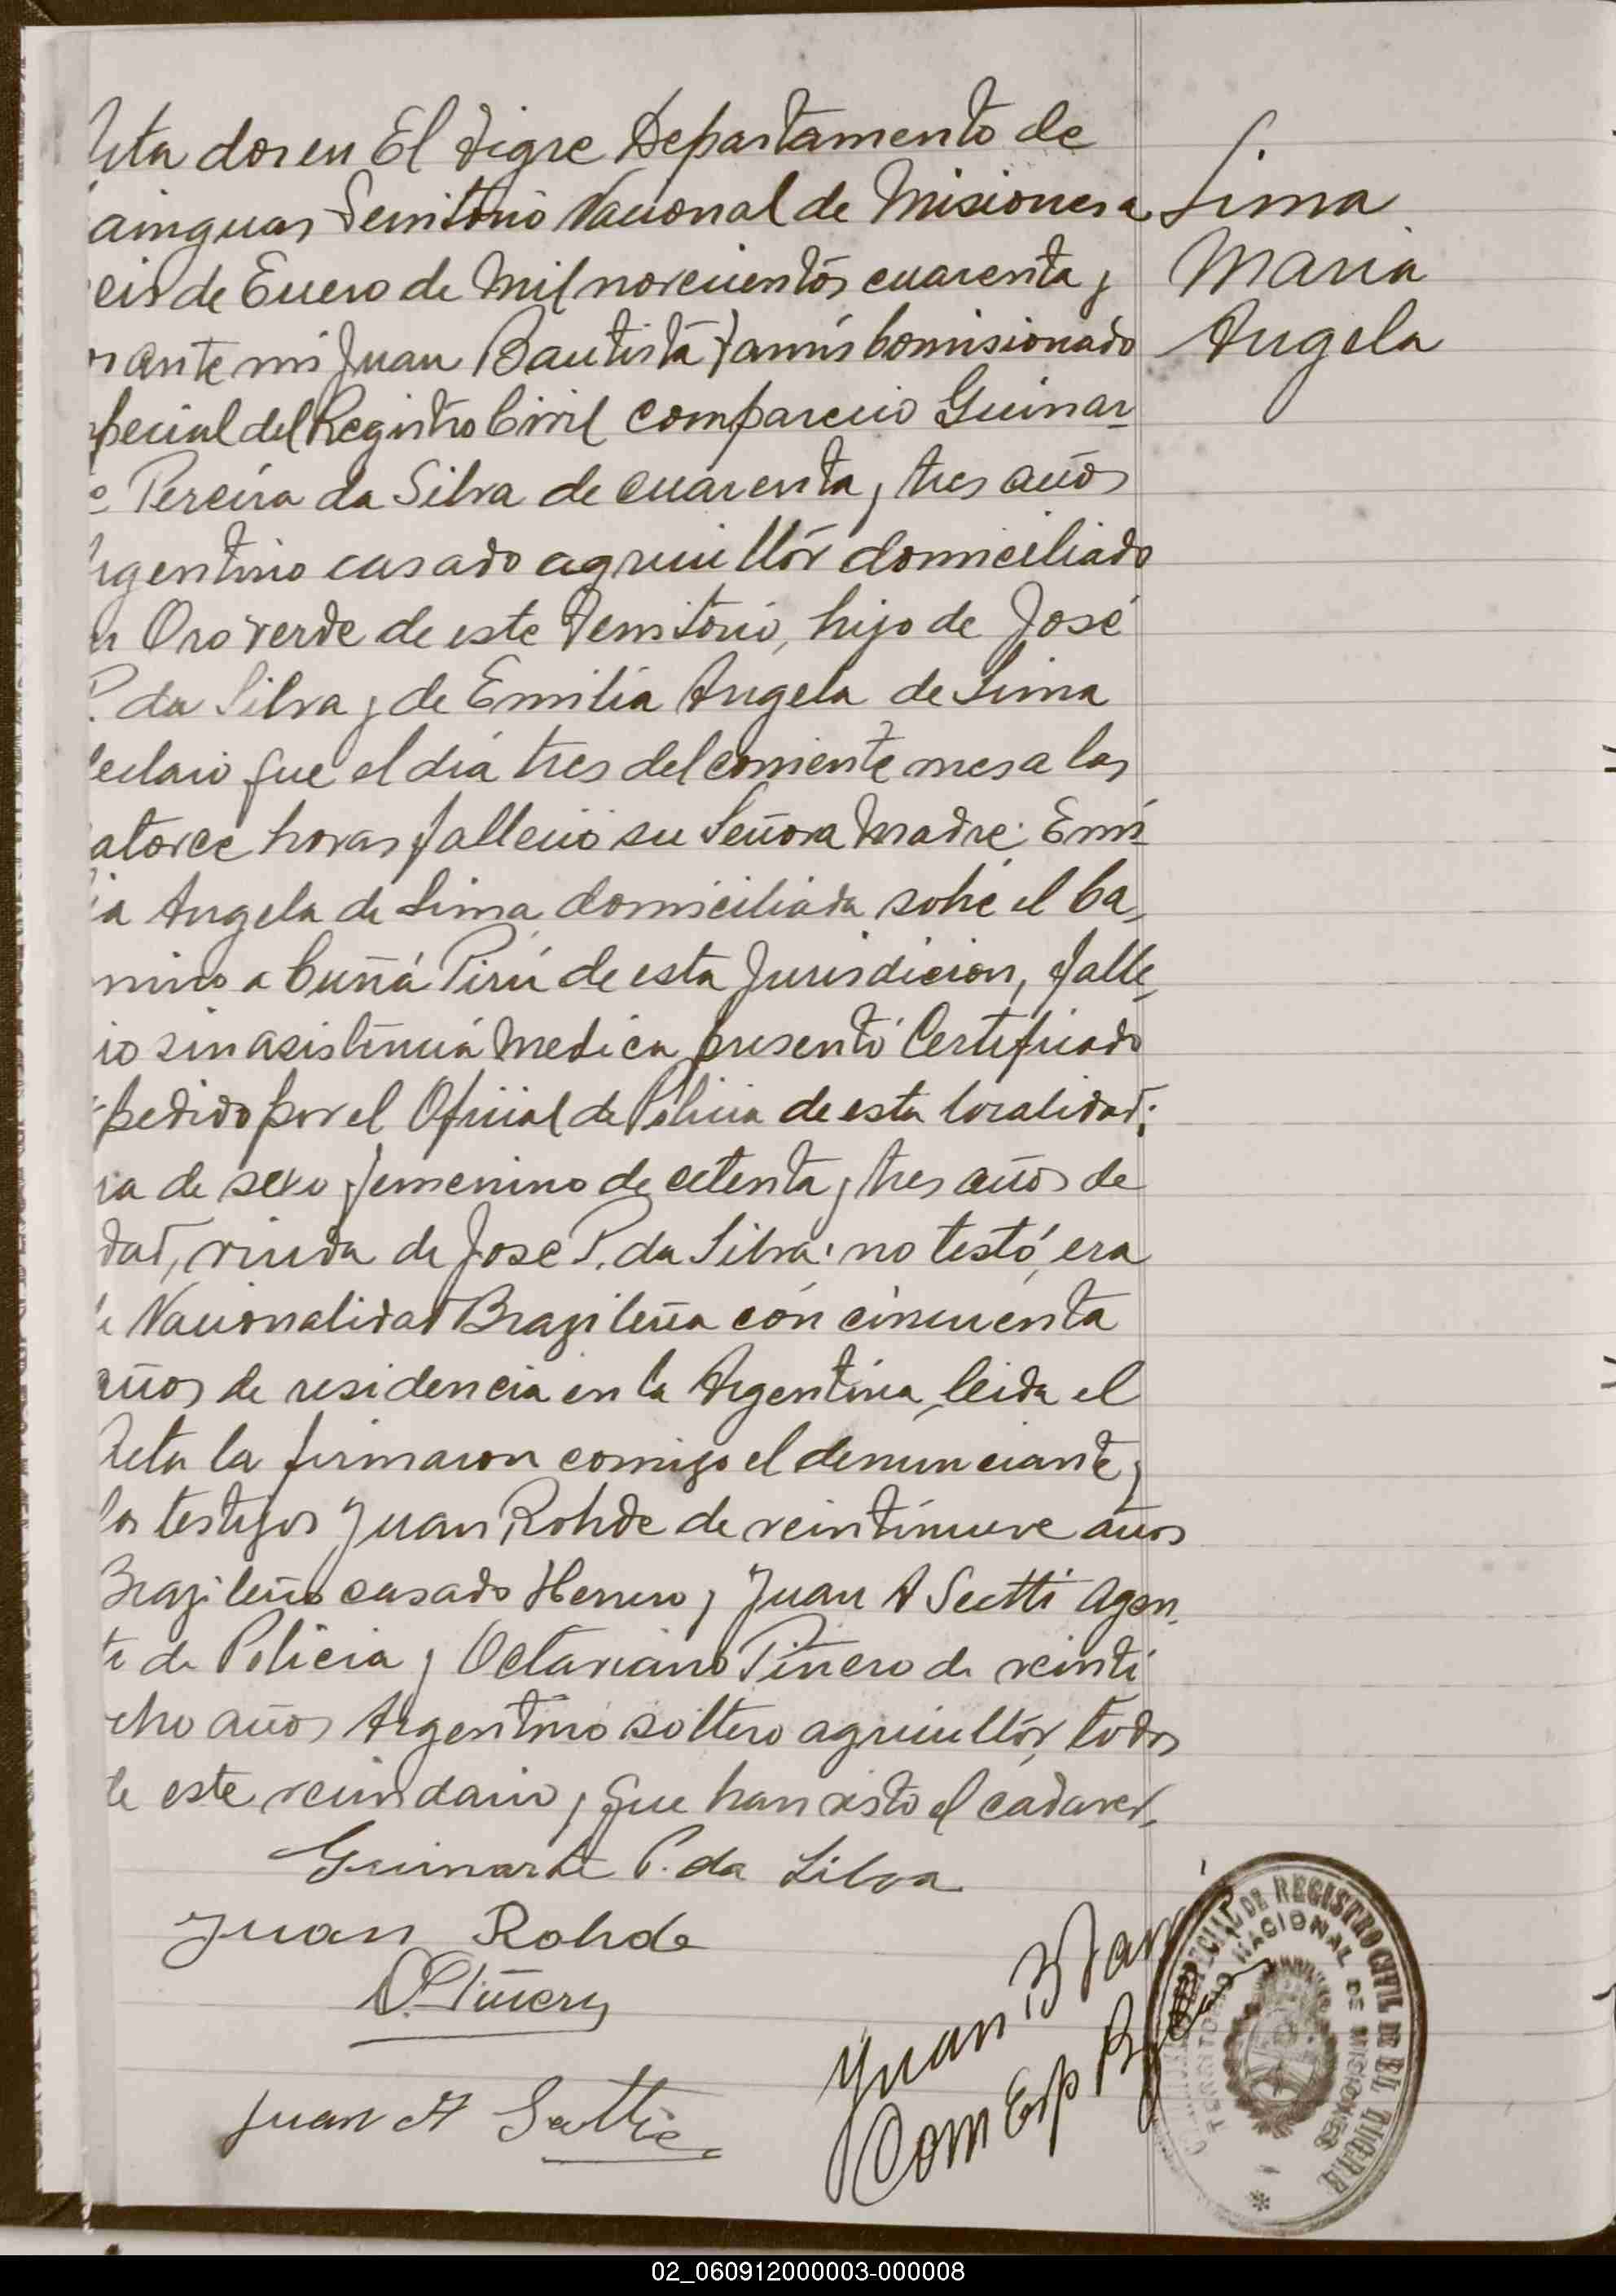 Acta dos en El Tigre Departamento de
ainguas Territorio Nacional de Misiones a
eis de Enero de Mil novecientos cuarenta y
ante mi Juan Bautista Comisionado
special del Registro Civil comparecio Guimar-
Pereira da Silva de cuarenta y tres años
rgentino casado agricultór domiciliado
n Oro verde de este Territorio, hijo de José
P. da Silva y de Emilia Angela de Lima
declaro que el día tres del corriente mes a las
atorce horas fallecio su Señora Madre: Emi-
ia Angela de Lima domiciliada sobre el Ca-
mino a Cuñá Pirú de esta Jurisdicion, falle-
io sin asistencia Medica presentó Certificado
pedido por el Oficial de Policia de esta localidad;
ra de sexo femenino de cetenta y tres años de
dad, viuda de Jose P. da Silva: no testó, era
de Nacionalidad Brazileña con cincuenta
años de residencia en la Argentina, leida el
Acta la firmaron comigo el denunciante y
los testigos Juan Rohde de veintinueve años
Brazileño casado Herrero y Juan A Sutti Agen-
te de Policia y Octaviano Piñero de veinti
cho años Argentino soltero agricultór, todos
de este vecindario y que han visto el cadaver.
Lima
Maria
Angela
Guimarte P. da Silva
Juan Rohde
O. Piñero
Juan A
Juan B
Com Esp
REGISTRO CIVIL DE EL TIGRE
TERRITORIO NACIONAL DE MISIONES
02_060912000003-000008